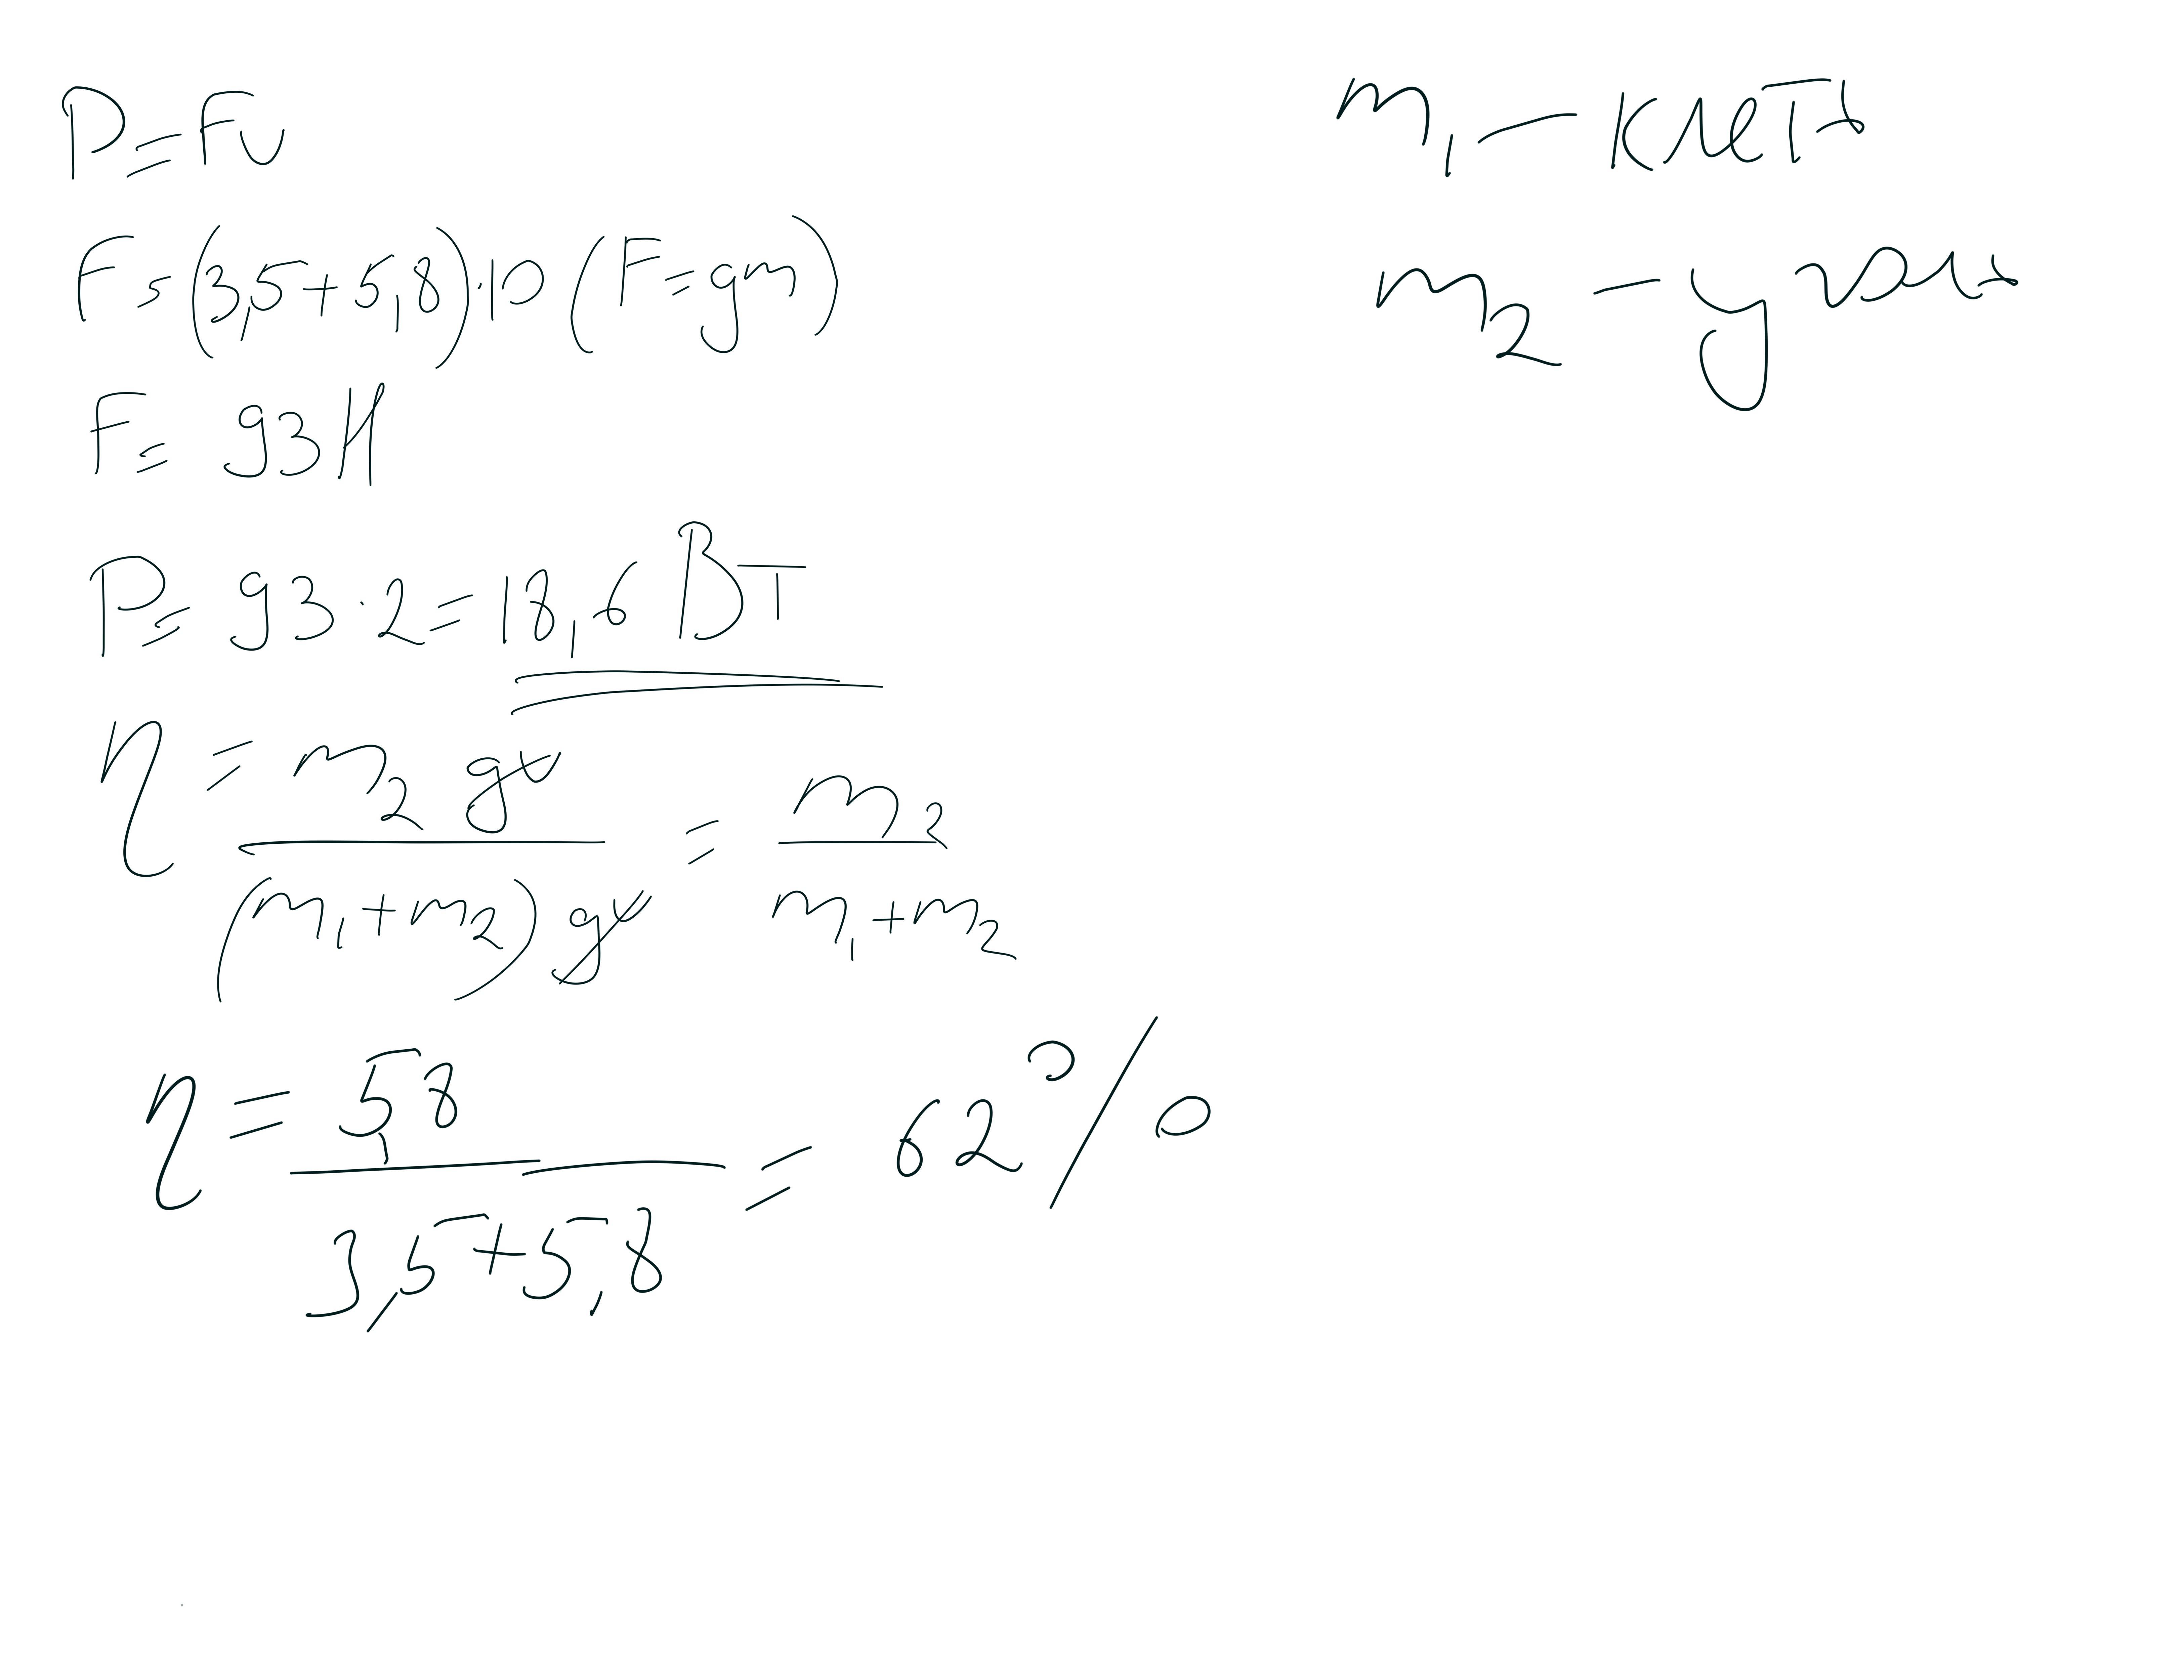 P = Fv
F = (3,5 + 5,8) · 10 (F = gm)
F = 93 Н
P = 93 · 2 = 18,6 Вт
η = m₂ gv / (m₁ + m₂) gv = m₂ / m₁ + m₂
η = 5,8 / 3,5 + 5,8 = 62 %
m₁ — клеть
m₂ — уголь